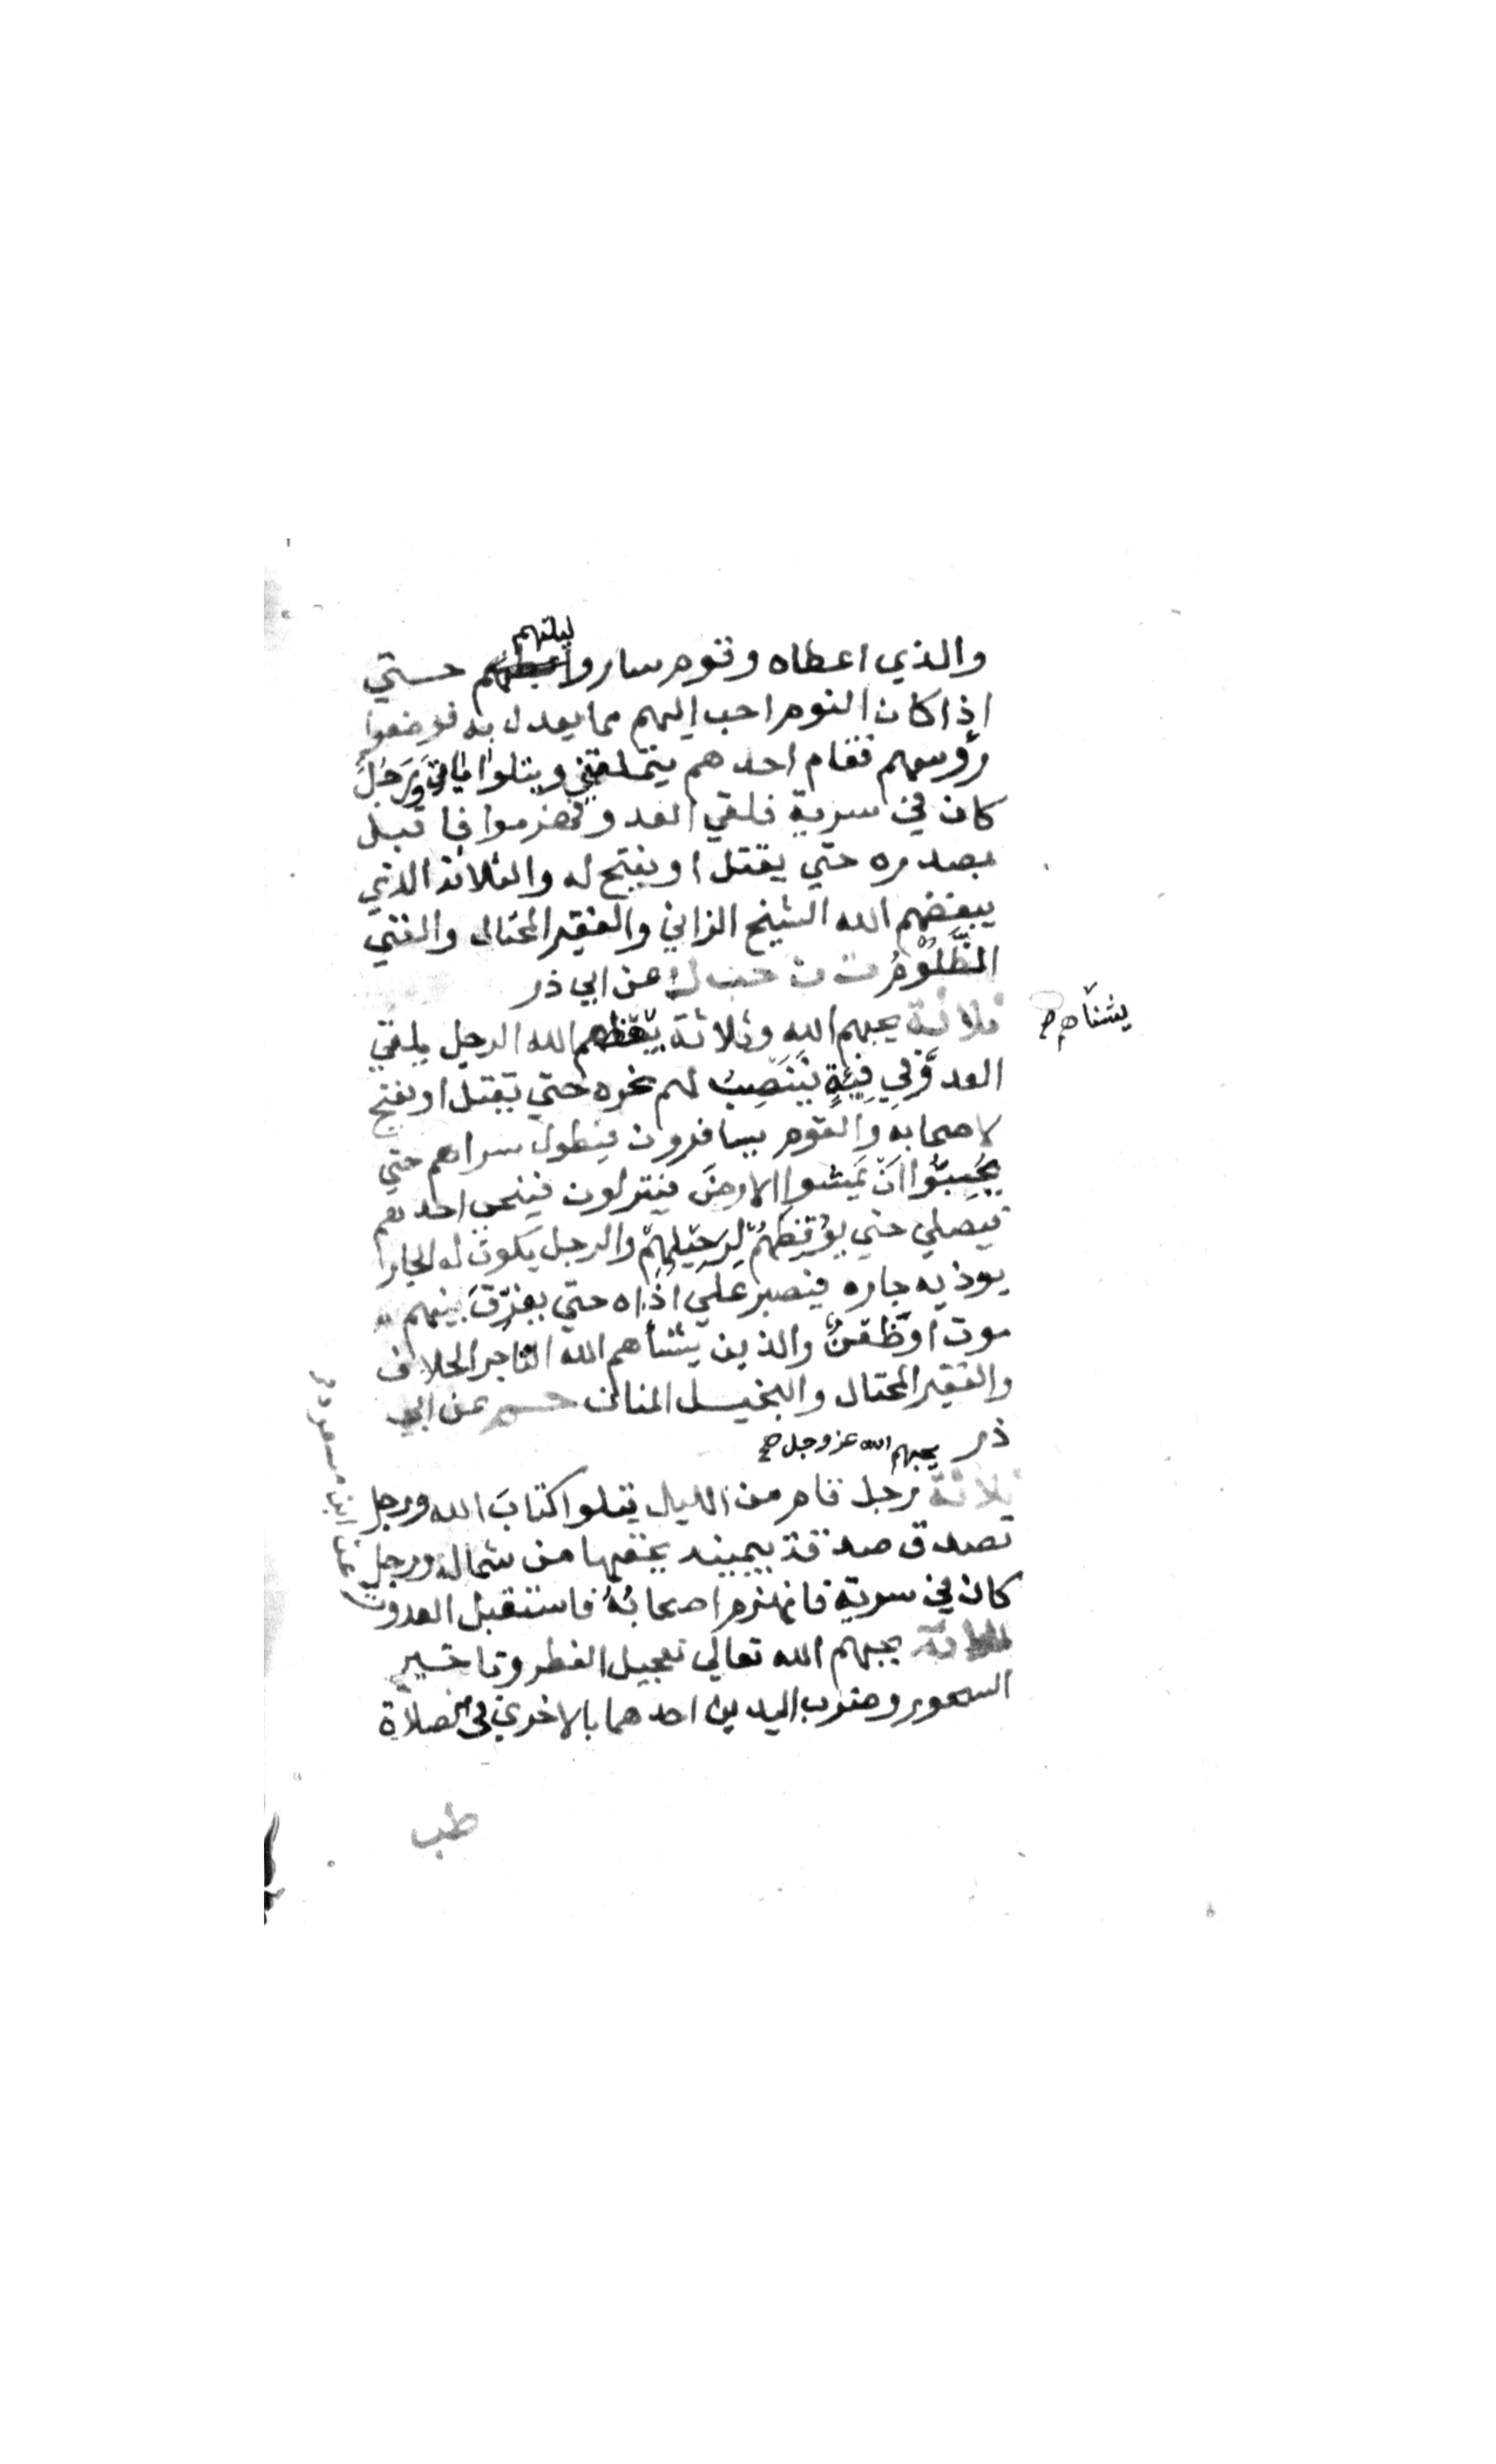 ليلتهم
والذي اعطاه وقوم ساروا حتي
اذا كان النوم احب اليهم مما يعدل به فوضعوا
رؤسهم فقام احدهم يتملقني ويتلوا اياتي ورجل
كان في سرية فلقي العدو فهزموا فاقبل
بصدره حتي يقتل او يفتح له والثلاثة الذي
يبغضهم الله الشيخ الزاني والفقير المختال والغني
الظَّلُوْمُ ت ن حب ك عن ابي ذر
يشنأهم صح
ثلاثة يحبهم الله وثلاثة الله الرجل يلقي
العدوَّ في فِئَةٍ يَنْصِبُ لهم نحره حتي يقتل او يفتح
لاصحابه والقوم يسافرون فيطول سراهم حتي
يُحِبُّوا اَنْ يَمَسُّوا الارض فينزلون فيتنحي احدهم
فيصلي حتي يُوْقِظَهُمْ لِرَحِيْلِهِمْ والرجل يكون له الجار
يوذيه جاره فيصبر عَلَي اَذَاه حتي يفرّقَ بينهم
موت او ظعنٌ والذين يشنأهم الله التاجر الحلاف
والفقير المختال والبخيل المنان حم عن ابي
ذر
يحبهم الله عز وجل صح
ثلاثة رجل قام من الليل يتلوا كتابَ الله ورجل
تصدق صدقة بيمينه يخفيها من شماله ورجل
كان في سرية فانهزم اصحابُهُ فاستقبل العدو ت
عن ابن مسعود
ثلاثة يحبهم الله تعالي تعجيل الفطر وتاخير
السحور وضرب اليدين احدهما بالاخري في الصلاة
طب